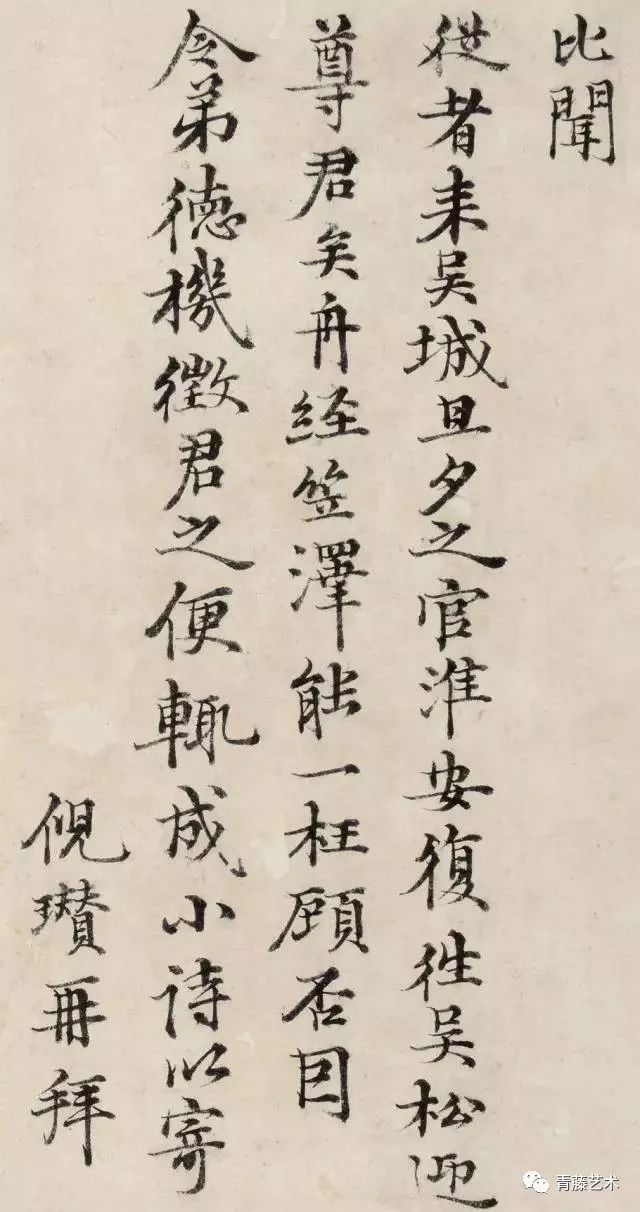 比聞
從者来吳城旦夕之官淮安復往吳松迎
尊君矣舟經笠澤能一枉顧否因
令弟德機徵君之便輒成小詩以寄
倪瓚再拜
青藤艺术